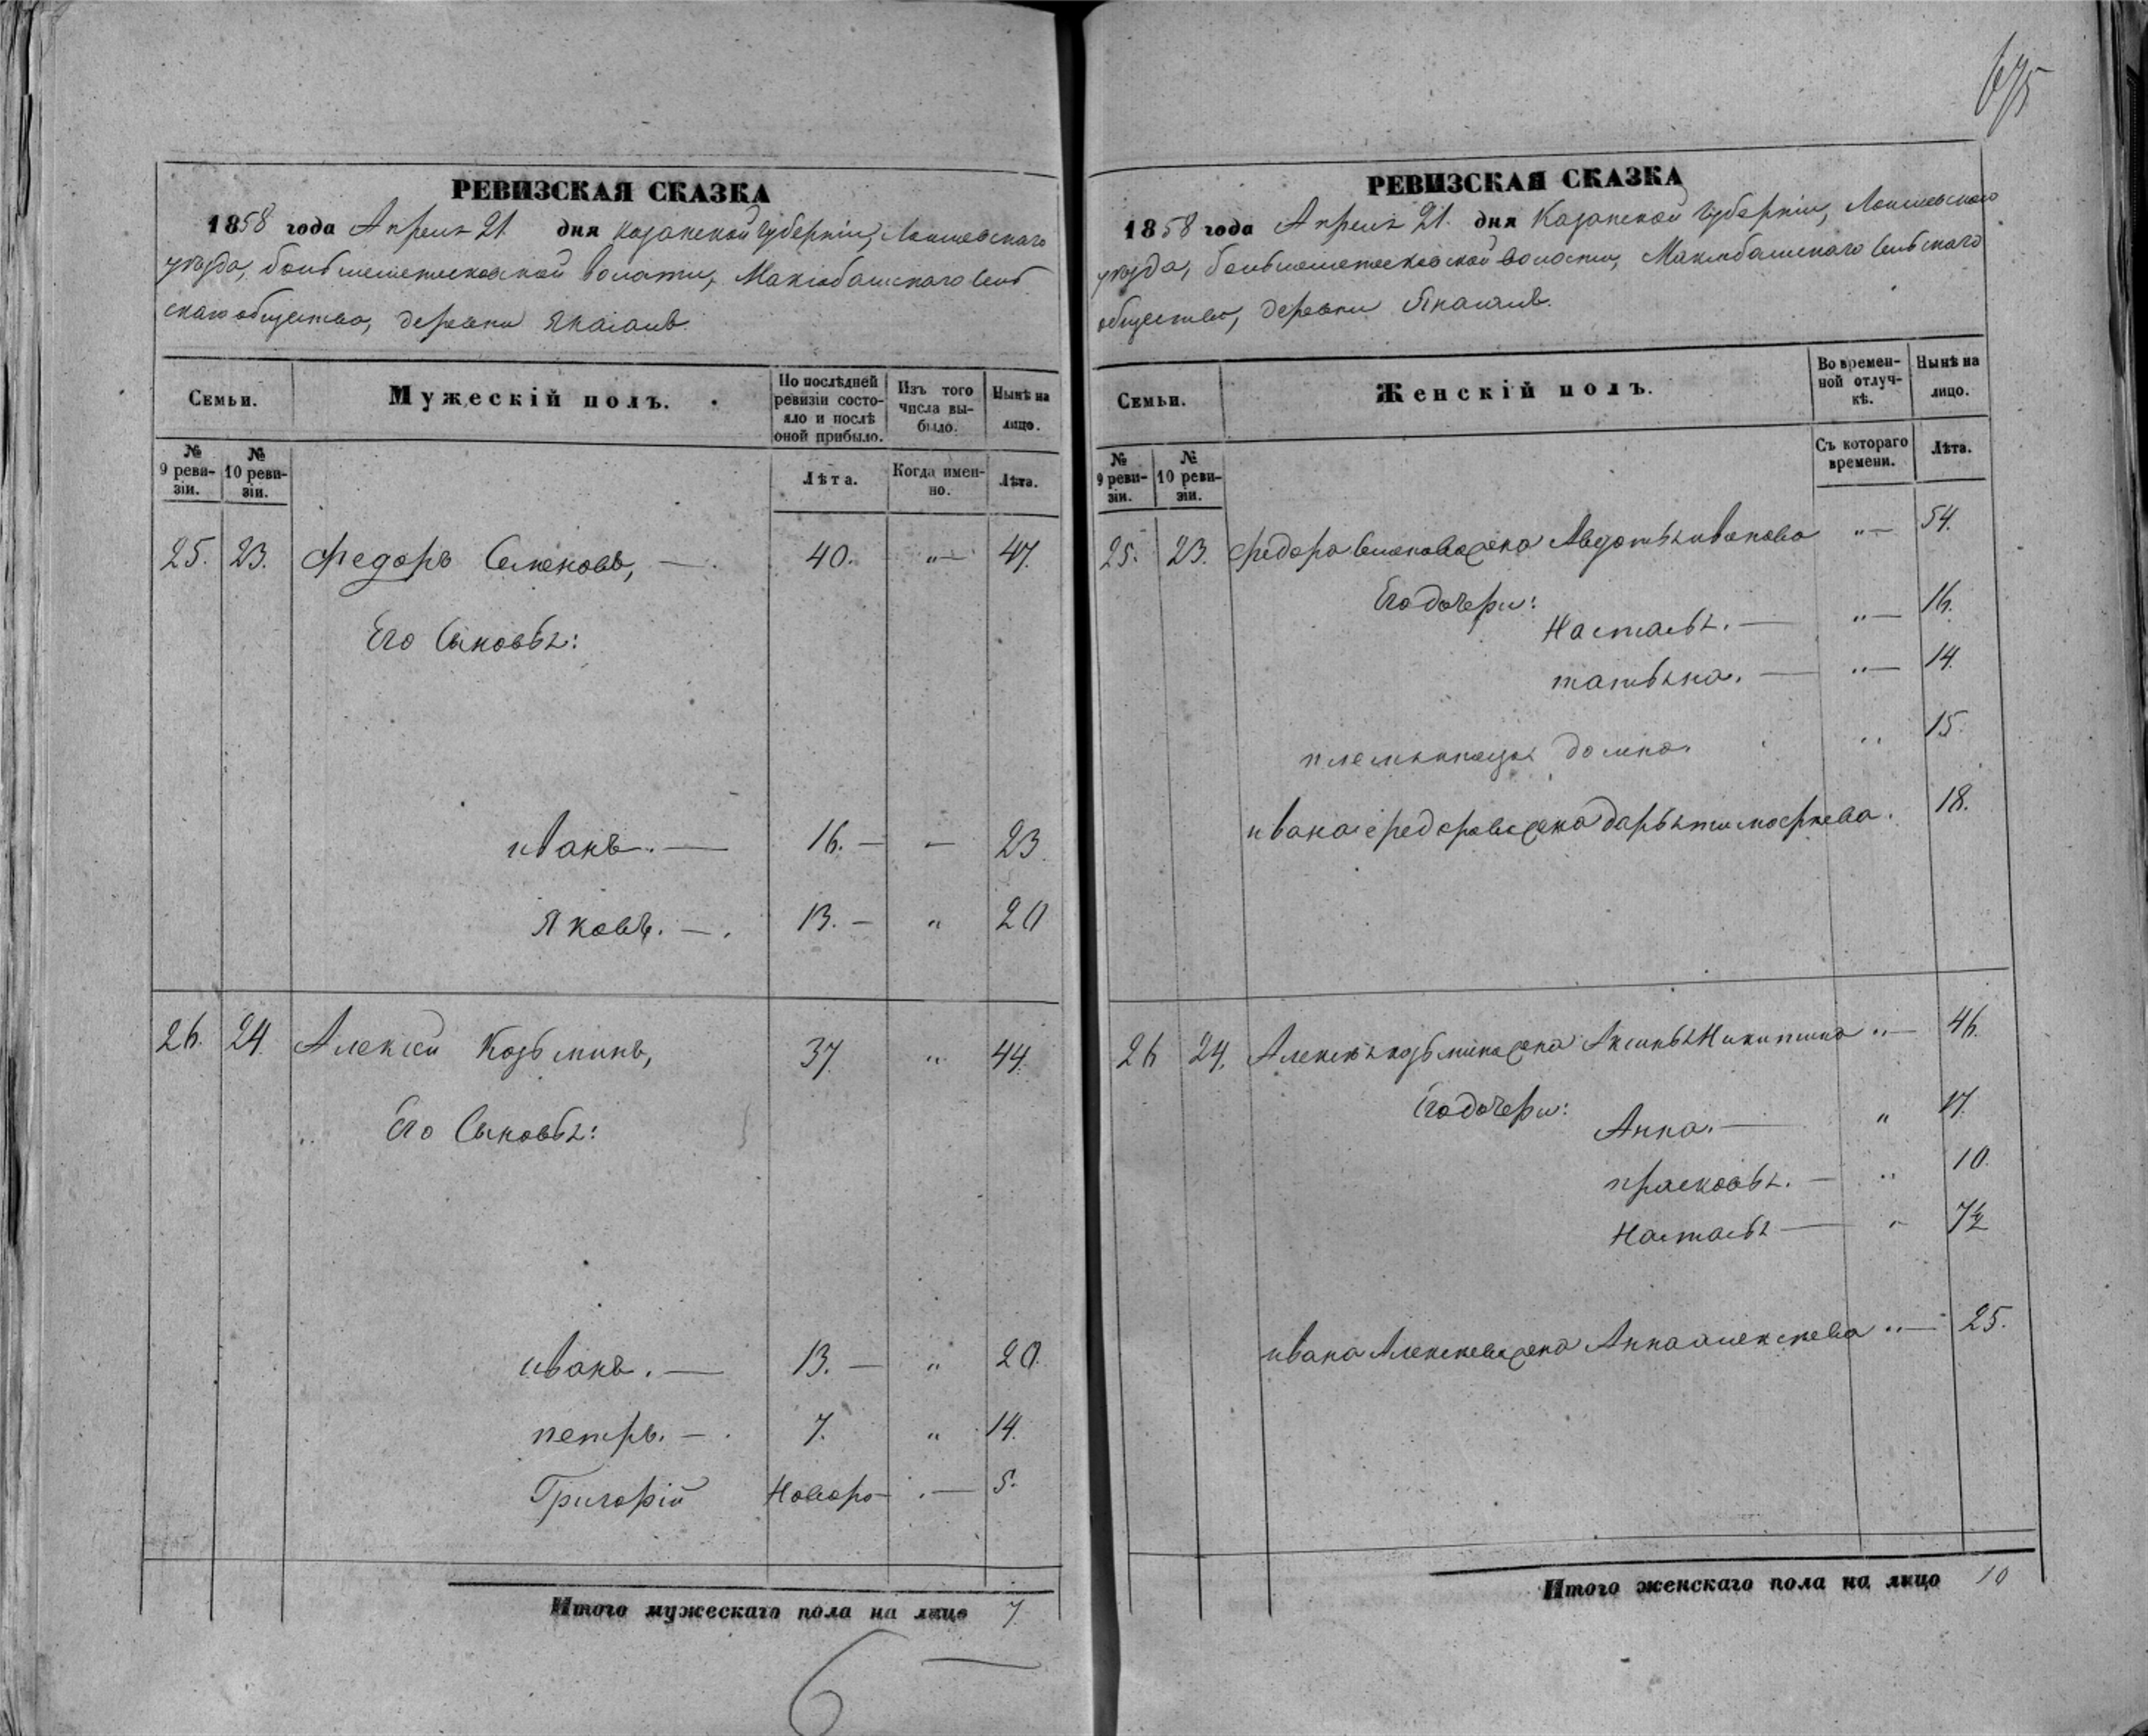 675
РЕВИЗСКАЯ СКАЗКА
1858 года Апреля 21 дня Казанской губернiи, Лаишевскаго
уѣзда, большеметескской волости, Макiобашскаго сель
скаго общества, деревни Янасалъ.
Семьи.
Мужескій полъ.
По послѣдней ревизіи состояло и послѣ оной прибыло.
Изъ того числа выбыло.
Нынѣ на лицо.
№ 9 ревизіи.
№ 10 ревизіи.
Лѣта.
Когда именно.
Лѣта.
25. 23. Федоръ Семеновъ, — 40. "— 47.
Его Сыновья:
иванъ. — 16. — — 23.
Яковъ. — 13. — " 20
26. 24. Алексѣй Козьминъ, 37 " 44.
Его Сыновья:
иванъ. — 13. — " 20.
петръ. — 7. " 14.
Григорій Новоро— "— 5.
Итого мужескаго пола на лицо 7.
6 —
РЕВИЗСКАЯ СКАЗКА
1858 года Апреля 21. дня Казанской губернiи, Лаишевскаго
уѣзда, большеметескской волости, Макiобашскаго сельскаго
общества, деревни Янасалъ.
Семьи.
Женскій полъ.
Во временной отлучкѣ.
Нынѣ на лицо.
№ 9 ревизіи.
№ 10 ревизіи.
Съ котораго времени.
Лѣта.
25. 23. Федора Семенова жена Авдотья иванова "— 54.
Его дочери:
Настасья. — "— 16.
татьяна. — "— 14.
племянница домна. " 15.
ивана Федорова жена дарья тимофеева. 18.
26 24. Алексѣя козьмина жена Аксинья Никитина "— 46.
Его дочери:
Анна. — " 17.
прасковья. — " 10.
Настасья — " 7½
ивана Алексеева жена Анна алексеева "— 25.
Итого женскаго пола на лицо 10